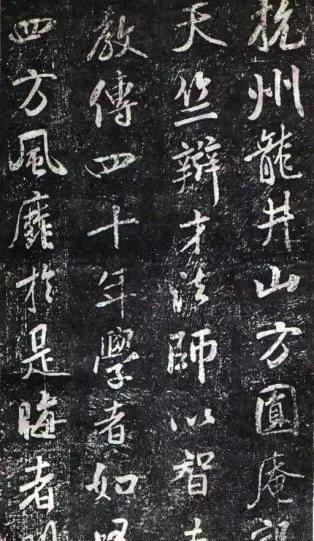 杭州龍井山方圓庵記
天竺辯才法師以智者
教傳四十年學者如
四方風靡於是晦者明